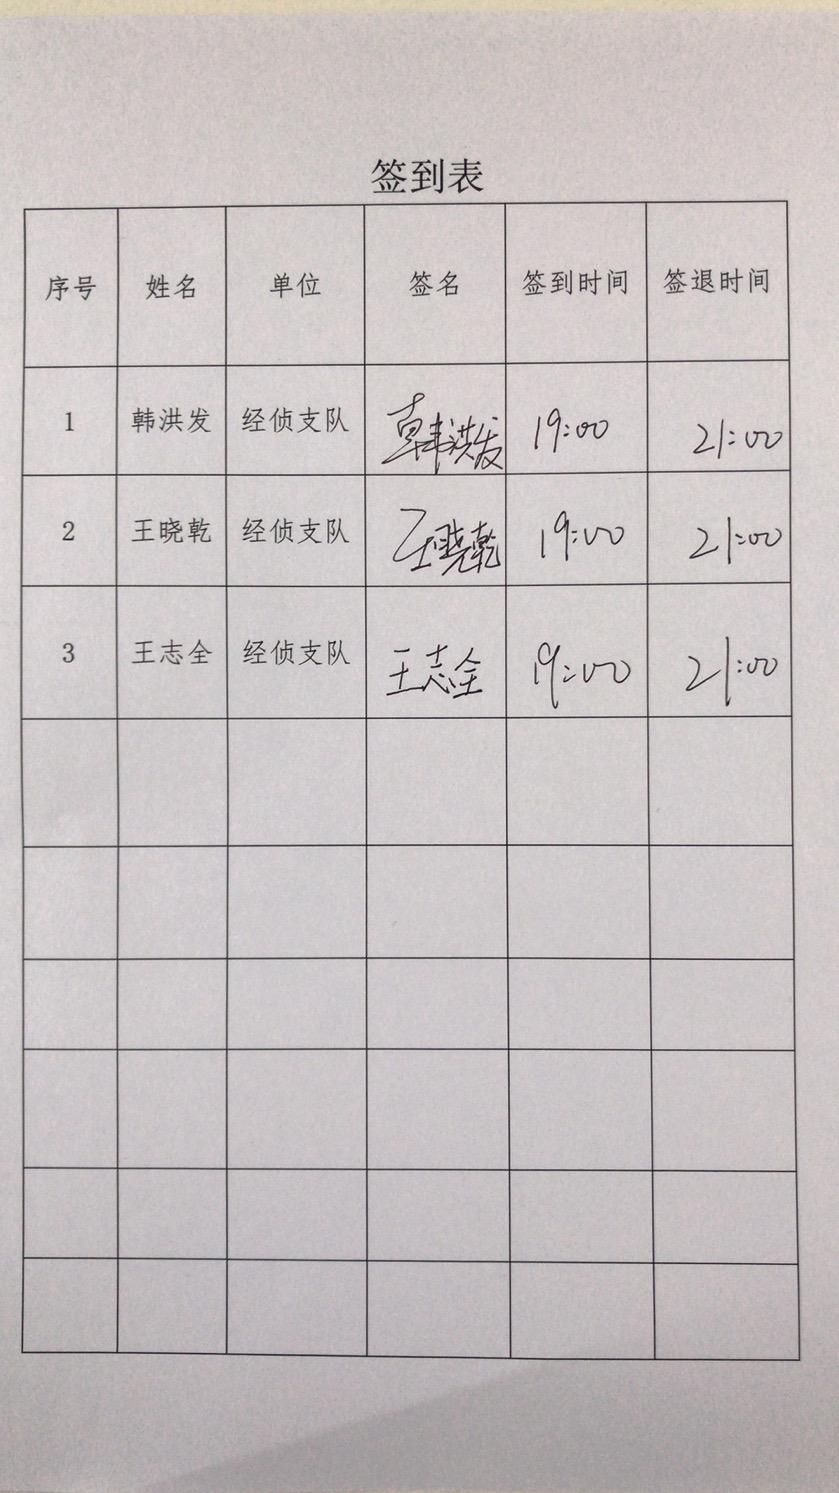 签到表
序号 姓名 单位 签名 签到时间 签退时间
1 韩洪发 经侦支队 韩洪发 19:00 21:00
2 王晓乾 经侦支队 王晓乾 19:00 21:00
3 王志全 经侦支队 王志全 19:00 21:00